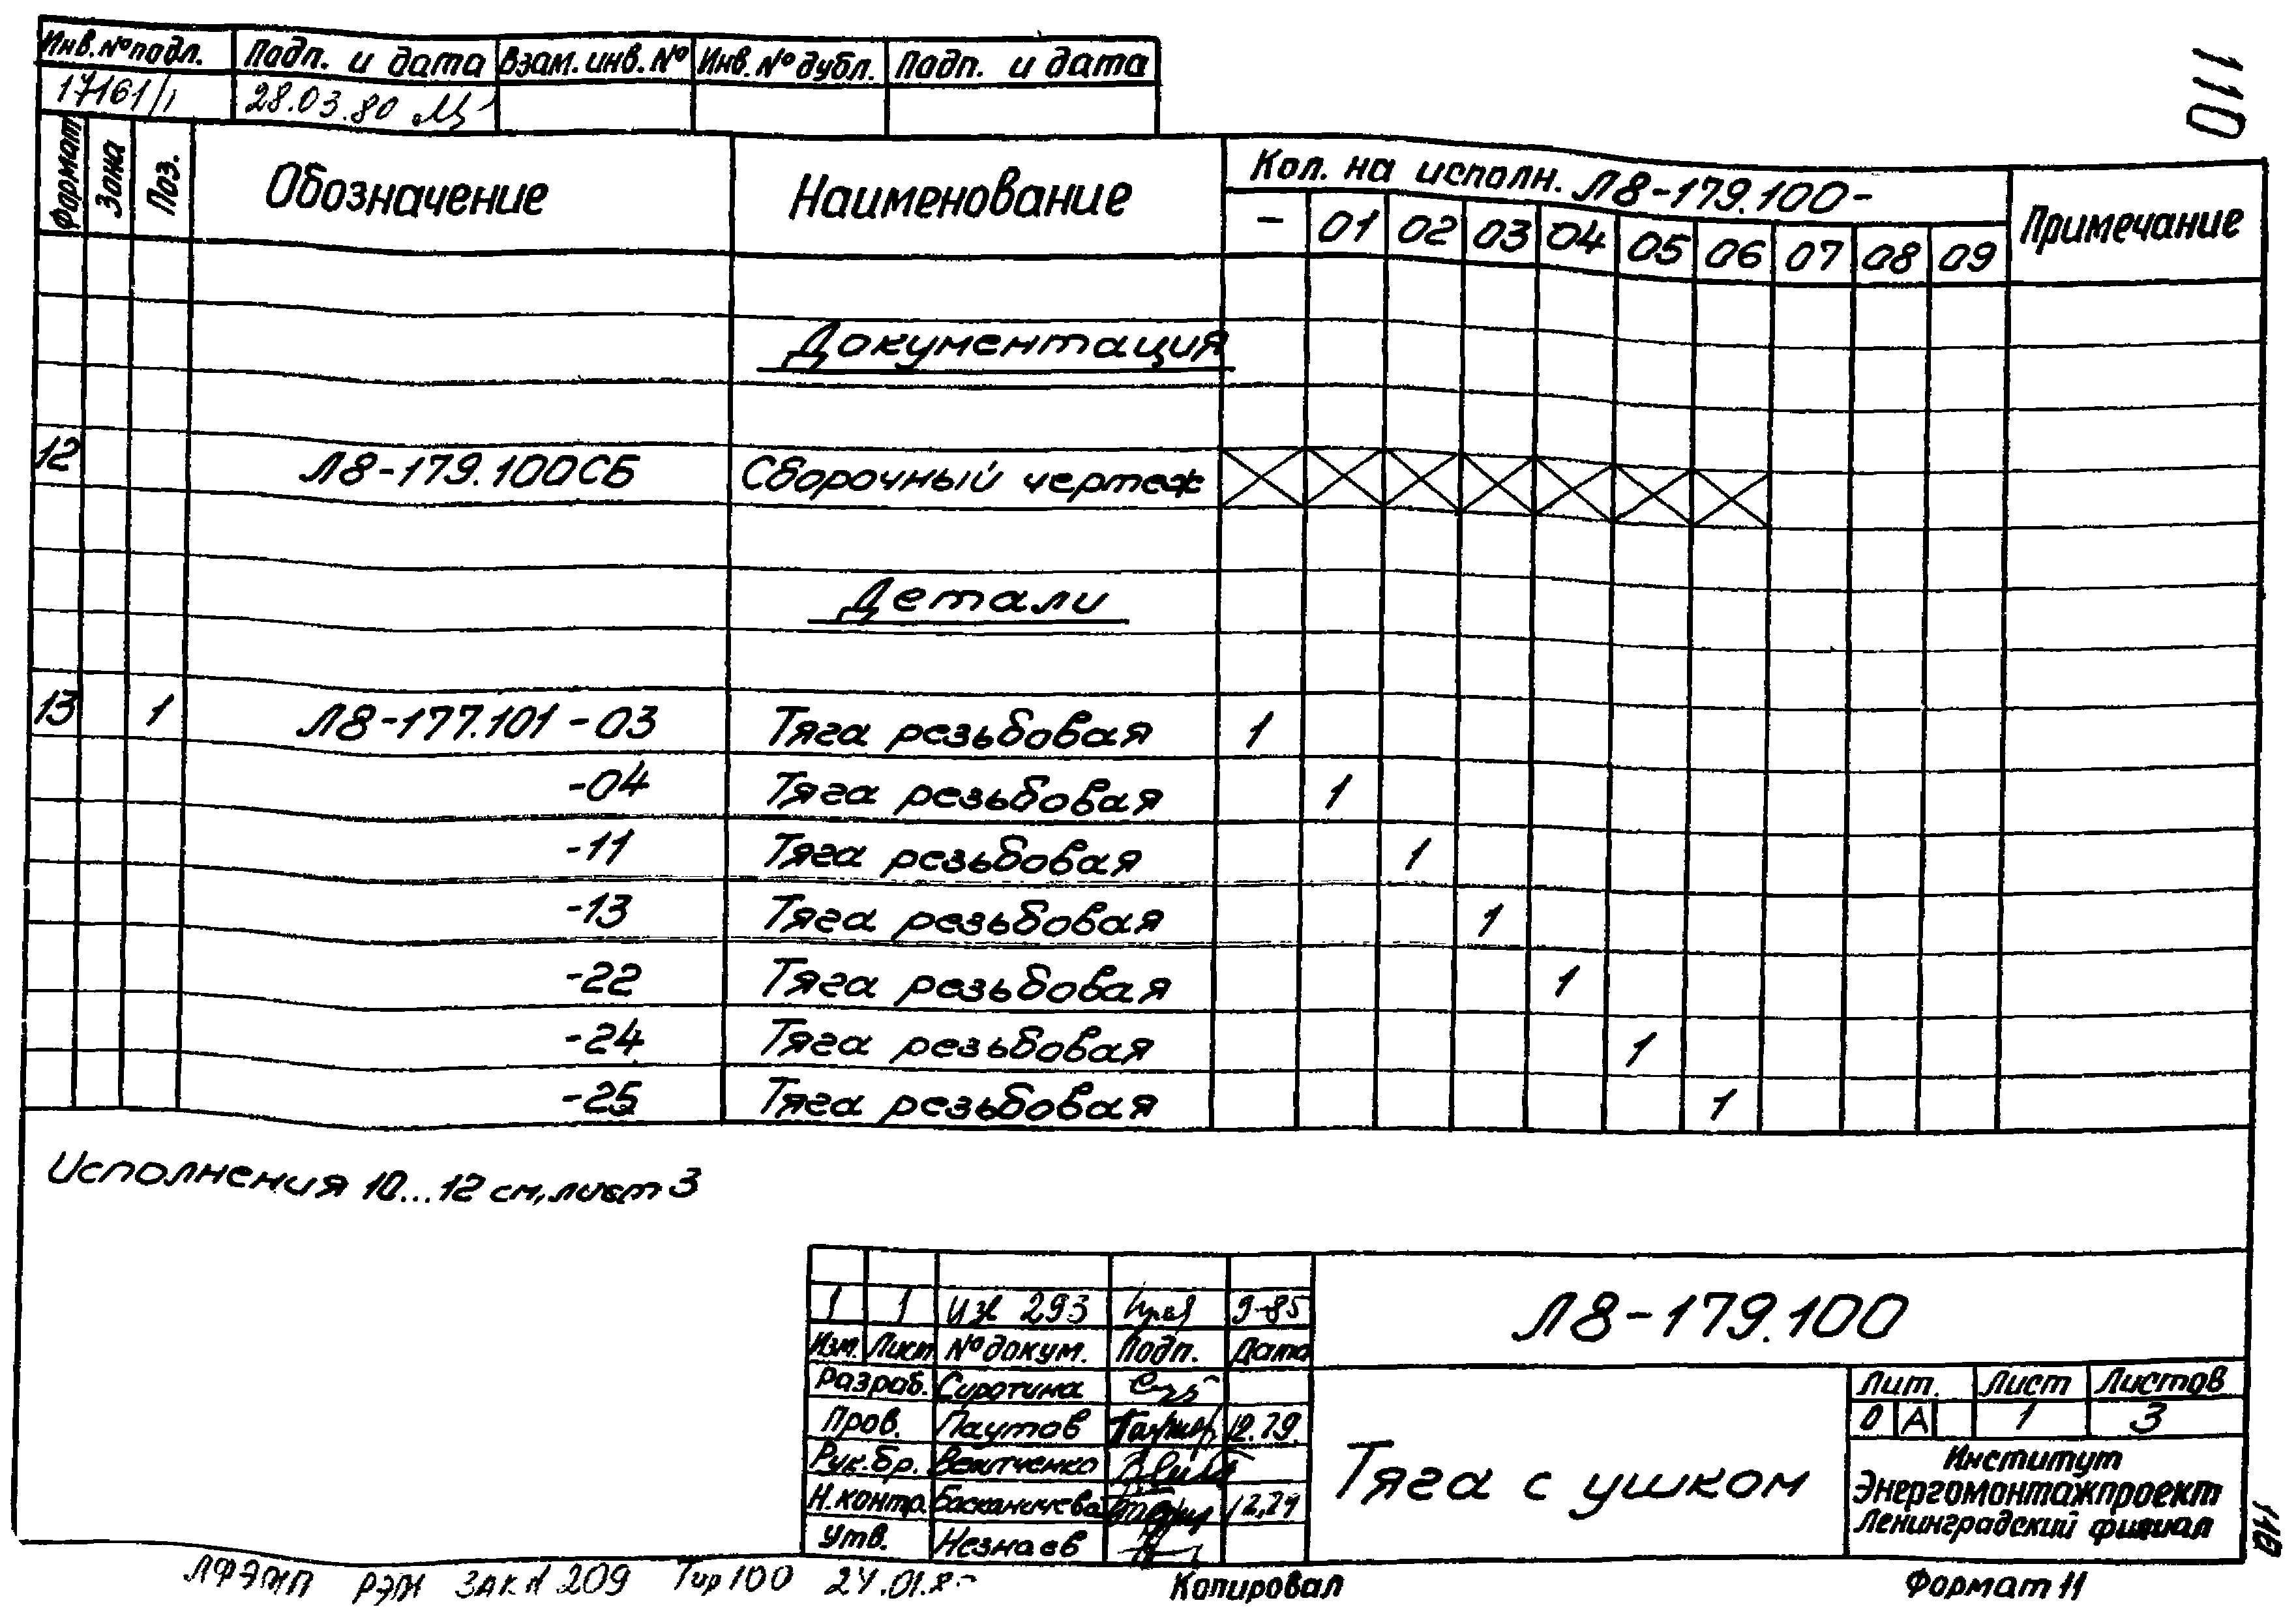 110
Инв.№ подл. Подп. и дата Взам. инв. № Инв.№ дубл. Подп. и дата
17161/1 28.03.80
Формат Зона Поз. Обозначение Наименование Кол. на исполн. Л8-179.100- Примечание
- 01 02 03 04 05 06 07 08 09
Документация
12 Л8-179.100СБ Сборочный чертеж
Детали
13 1 Л8-177.101-03 Тяга резьбовая 1
-04 Тяга резьбовая 1
-11 Тяга резьбовая 1
-13 Тяга резьбовая 1
-22 Тяга резьбовая 1
-24 Тяга резьбовая 1
-25 Тяга резьбовая 1
Исполнения 10...12 см, лист 3
1 1 293 9-85
Изм. Лист № докум. Подп. Дата
Л8-179.100
Разраб. Сиротина
Пров. Паутов 12.79.
Рук.бр.
Н.контр. 12,79
Утв. Незнаев
Тяга с ушком
Лит. Лист Листов
О А 1 3
Институт
Энергомонтажпроект
Ленинградский филиал
110
ЛФЭМП РЭМ Зак № 209 Тир 100
Копировал
Формат 11